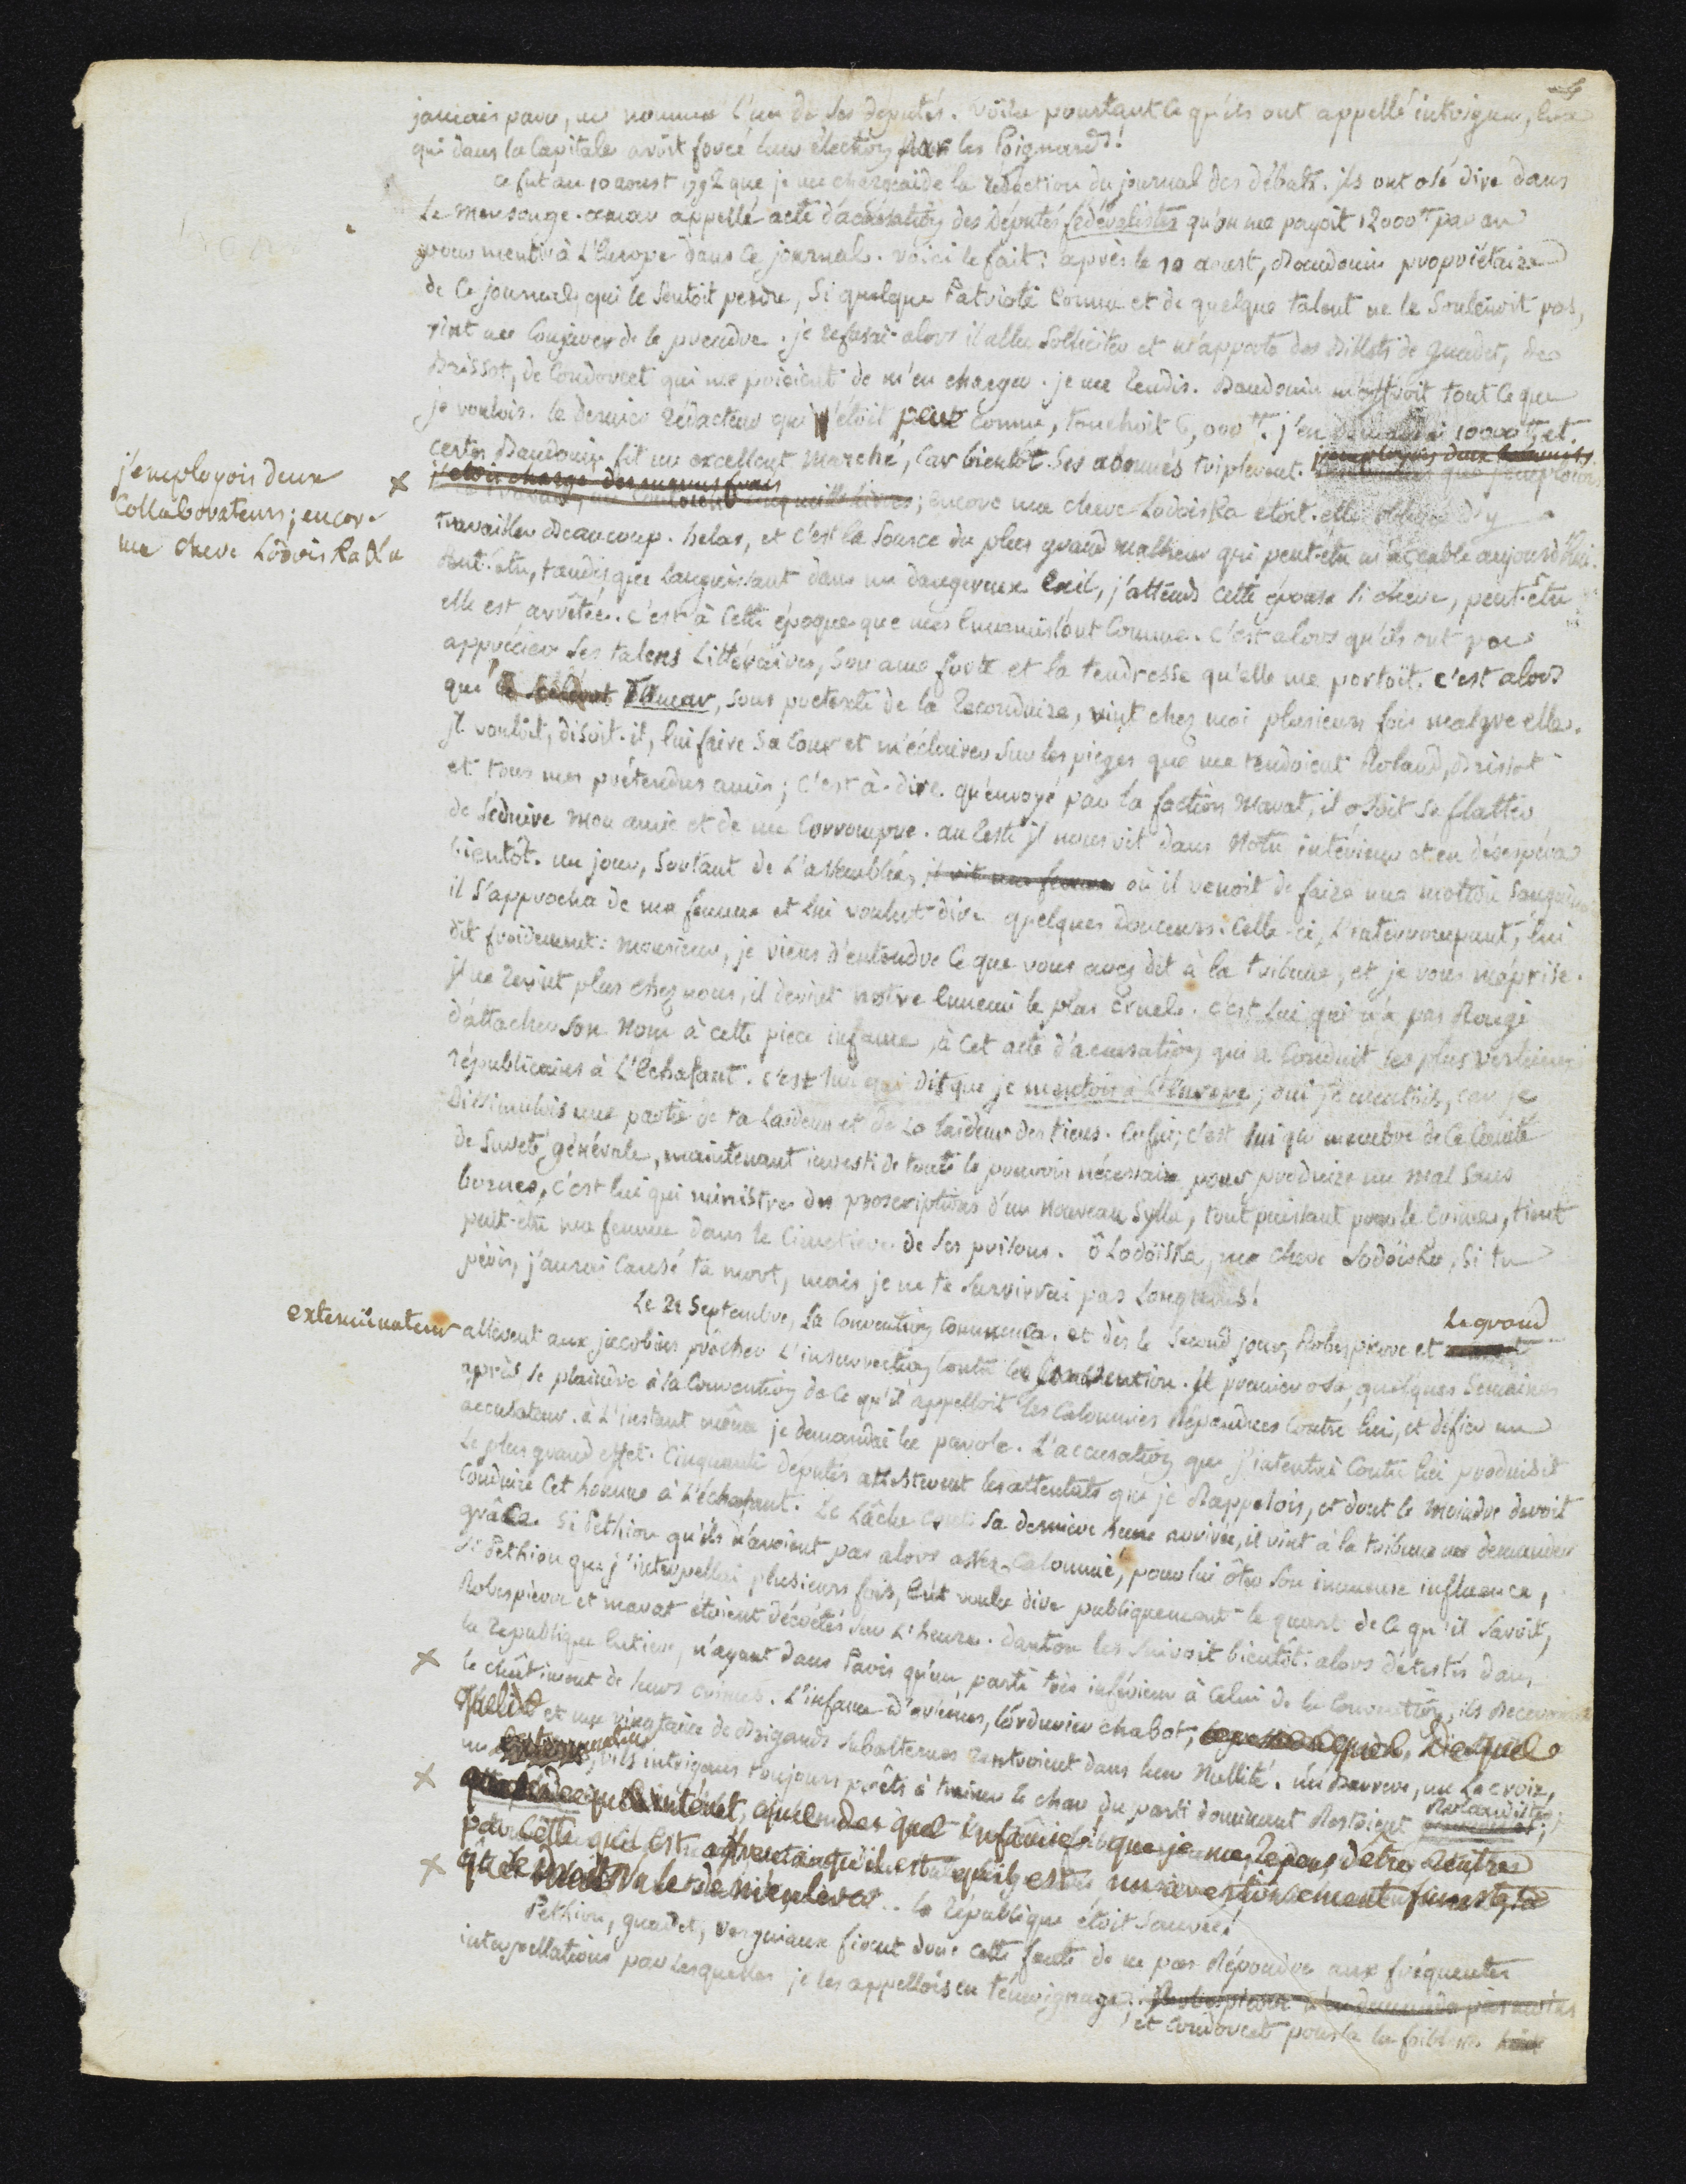 jamais paru, me nomma l'un de ses députés. voila pourtant ce qu'ils ont appellé intrigue, eux
qui dans la Capitale avoit forcé leur élection par les Poignards!
ce fut au 10 aoust 1792 que je me chargeai de la rédaction du journal des débats. ils ont osé dire dans
le mensonge-amar appellé acte d'accusation des députés fédéralistes qu'on me payoit 12000tt par an
pour mentir à L'Europe dans ce journal. voici le fait: après le 10 aoust, Baudouin propriétaire
de ce journal, qui le sentoit perdre, si quelque Patriote connu et de quelque talent ne le soutenoit pas,
vint me conjurer de le prendre. je refusai alors il alla solliciter et m'apporta des Billets de guadet, de
Brissot, de Condorcet qui me prioient de m'en charger. je me rendis. Baudouin m'offroit tout ce que
je voulois. le dernier rédacteur qui n'étoit peut connu, touchoit 6,000tt. j'en demandai 10000tt et
certes Baudouin fit un excellent marché, car bientôt ses abonnés triplerent. que j'emploiois
j'employois deux
Collaborateurs; encor
ma chere Lodoiska &a
; encore ma chere Lodoiska etoit-elle obligée d'y
travailler Beaucoup. helas, et c'est la source du plus grand malheur qui peut-être m'accable aujourd'hui.
Peut-être, tandis que languissant dans un dangereux Exil, j'attends cette épouse si chere, peut-être
elle est arrêtée. c'est à cette époque que mes Ennemis l'ont connue. c'est alors qu'ils ont pu
apprécier ses talens Littéraires, son ame forte et la tendresse qu'elle me portoit. c'est alors
que le scélérat Amar, sous pretexte de la reconduire, vint chez moi plusieurs fois malgre elle.
Il vouloit, disoit-il, lui faire sa cour et m'éclairer sur les pieges que me tendoient Roland, Brissot
et tous mes prétendus amis; c'est-à-dire qu'envoyé par la faction Marat, il osoit se flatter
de séduire mon amie et de me corrompre. au reste il nous vit dans Notre intérieur et en désespéra
bientôt. un jour, sortant de L'assemblée, il vit ma femme où il venoit de faire une motion sanguinaire
il s'approcha de ma femme et lui voulut dire quelques douceurs: celle-ci, L'interrompant, lui
dit froidement: monsieur, je viens d'entendre ce que vous avez dit à la tribune, et je vous méprise.
Il ne revint plus chez nous, il devint notre Ennemi le plus cruel. c'est lui qui n'a pas Rougi
d'attacher son Nom à cette piece infame, à cet acte d'accusation qui a conduit les plus vertueux
républicains à L'Echafaut. c'est lui qui dit que je mentois à l'Europe; oui je mentois, car je
Dissimulois une partie de ta laideur et de la laideur des tiens. Enfin, c'est lui qui membre de ce Comité
de Sureté générale, maintenant investi de tout le pouvoir nécessaire pour produire un mal sans
bornes, c'est lui qui ministre des proscriptions d'un nouveau Sylla, tout puissant pour le Crime, tient
peut-être ma femme dans le Cimetiere de ses prisons. ô Lodoïska, ma chere Lodoïska, si tu
péris, j'aurai causé ta mort, mais je ne te survivrai pas longtems!
Le 21 Septembre, la Convention commença. et dès le second jour, Robespierre et Le grand
exterminateur allerent aux jacobins prêcher L'insurrection contre la Convention. Il premier osa, quelques semaines
après, se plaindre à la Convention de ce qu'il appelloit les Calomnies Répandues contre lui, et défier un
accusateur. à L'instant même je demandai la parole. L'accusation que j'intentai contre lui produisit
le plus grand effet. Cinquante députés attesterent les attentats que je Rappelois, et dont le moindre devoit
conduire cet homme à L'échafaut. Le Lâche crut sa derniere heure arrivée, il vint à la tribune me demander
grâce. Si Pethion qu'ils n'avoient pas alors assez Calomnié, pour lui ôter son immense influence,
si Pethion que j'interpellai plusieurs fois, Eut voulu dire publiquement le quart de ce qu'il savoit,
Robespierre et marat étoient décrétés sur L'heure. Danton les suivoit bientôt. alors détestés dans
la République Entiere, n'ayant dans Paris qu'un parti très inférieur à celui de la Convention, ils Recevoient
le châtiment de leurs crimes. L'infame d'orléans, l'ordurier chabot,
et une vingtaine de Brigands subalternes rentroient dans leur Nullité. un Barrere, un Lacroix,
un , vils intrigans toujours prêts à traîner le char du parti dominant Restoient Rolandistes;
la République étoit sauvée!
Pethion, guadet, vergniaux firent donc cette faute de ne pas Répondre aux fréquentes
interpellations par lesquelles je les appellois en témoignage.
et Condorcet poussa la foiblesse